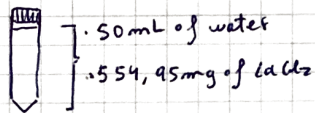 · 50mL of water
· 554,95mg of CaCl₂